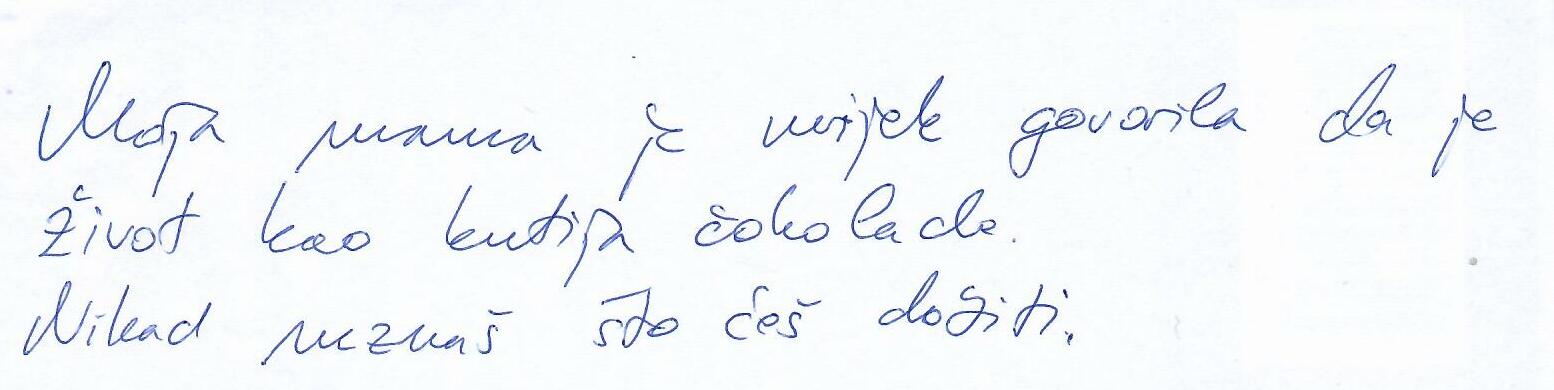 Moja mama je uvijek govorila da je
život kao kutija čokolade.
Nikad neznaš što ćeš dožiti.